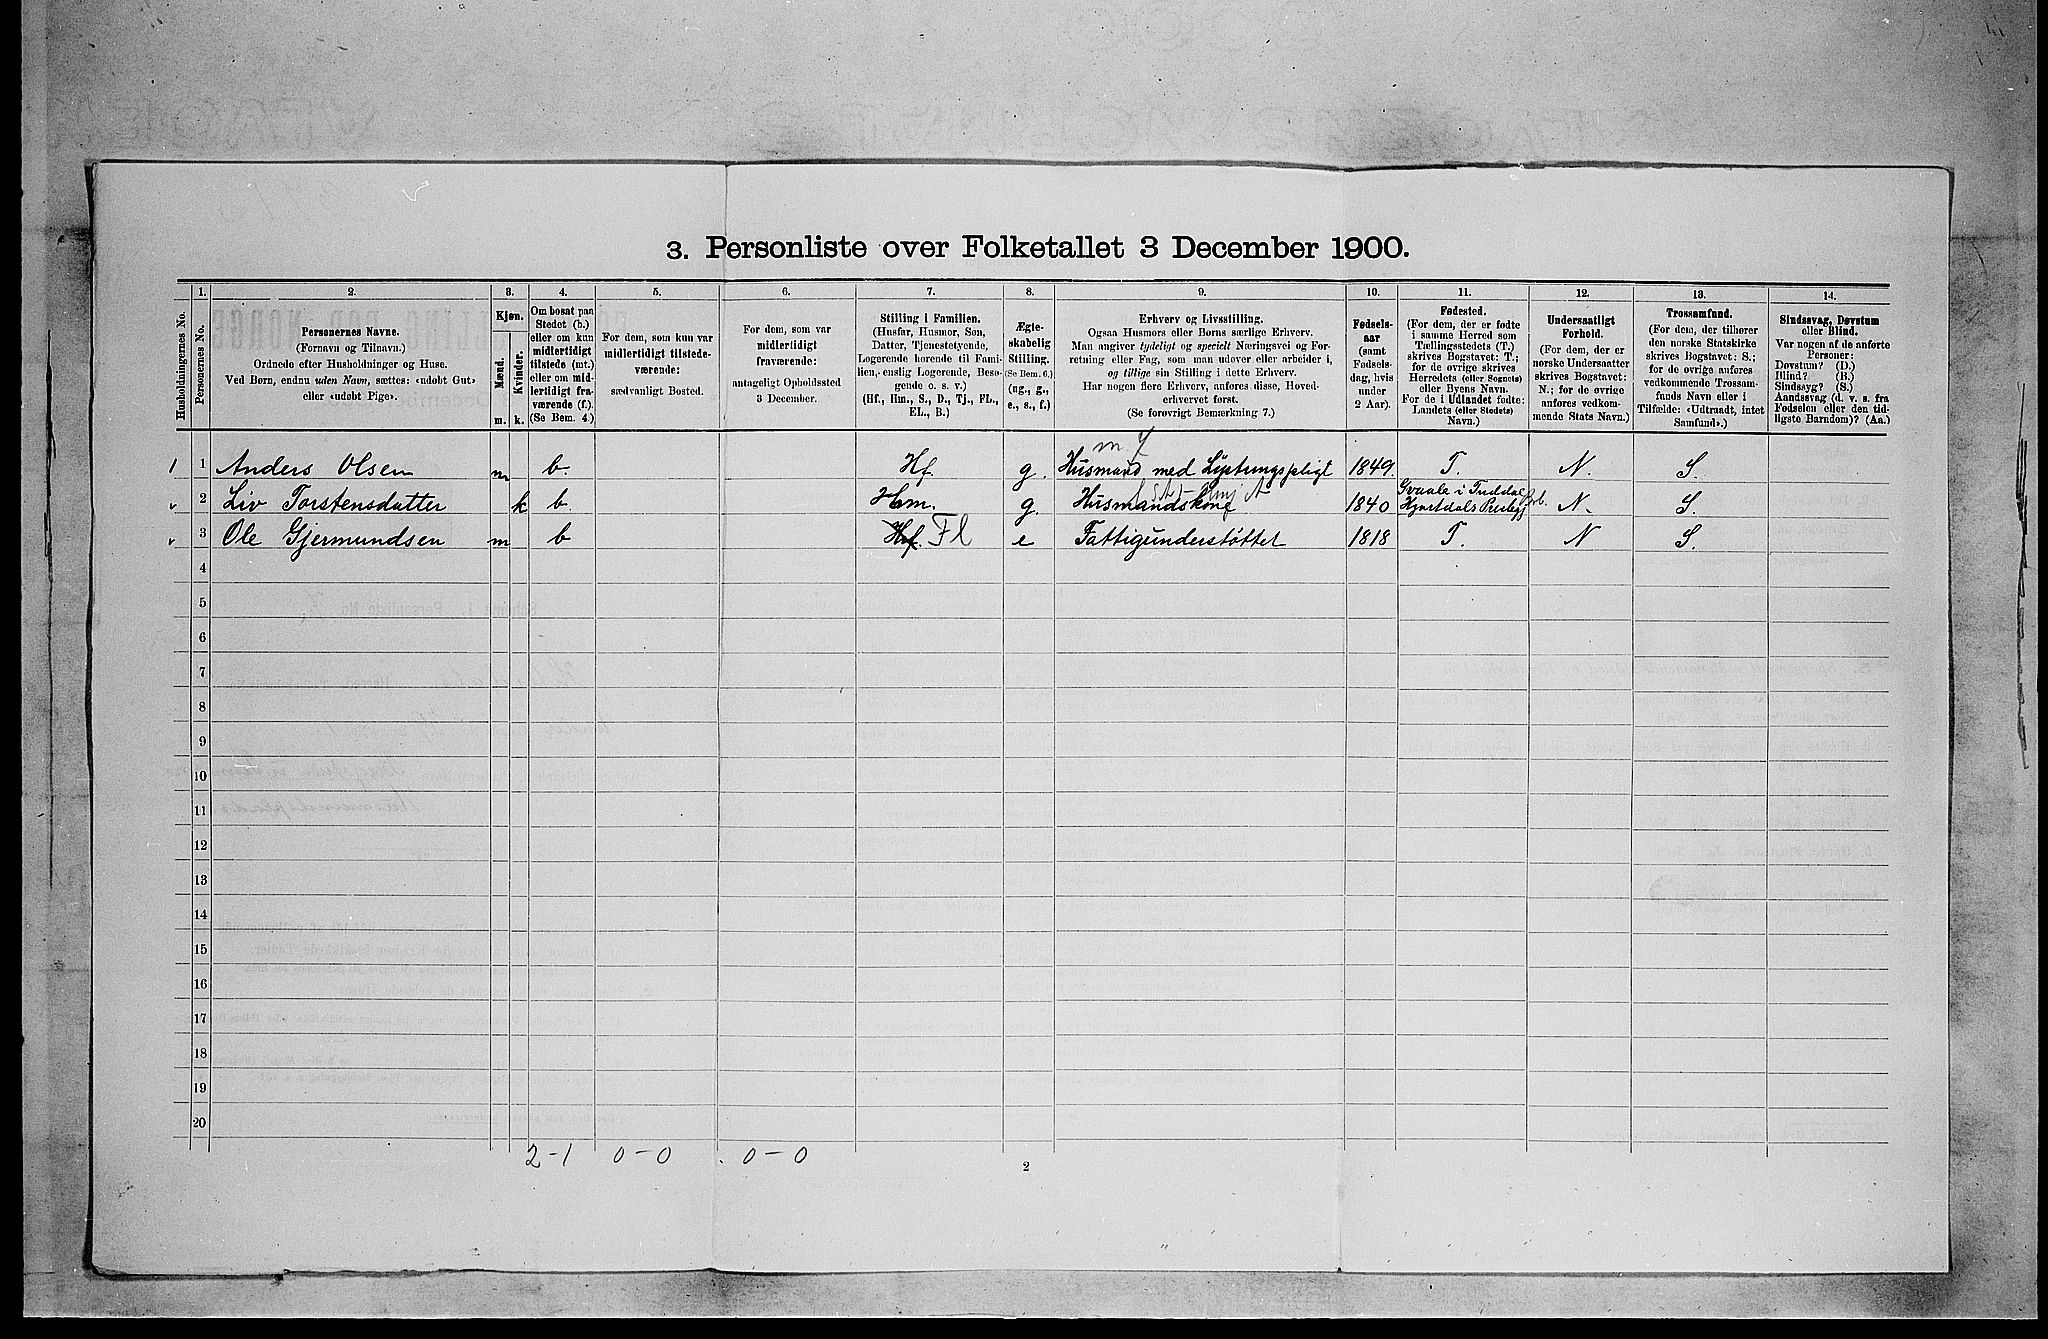 3. Personliste over Folketallet 3 December 1900.
1. 2. 3. 4. 5. 6. 7. 8. 9. 10. 11. 12. 13. 14.
Husholdningernes No.
Personernes No.
Personernes Navne.
(Fornavn og Tilnavn.)
Ordnede efter Husholdninger og Huse.
Ved Børn, endnu uden Navn, sættes: «udøbt Gut»
eller «udøbt Pige».
Kjøn.
Mænd.
Kvinder.
m. k.
Om bosat paa
Stedet (b.)
eller om kun
midlertidigt
tilstede (mt.)
eller om mid-
lertidigt fra-
værende (f.).
(Se Bem. 4.)
For dem, som kun var
midlertidigt tilstede-
værende:
sædvanligt Bosted.
For dem, som var
midlertidigt
fraværende:
antageligt Opholdssted
3 December.
Stilling i Familien.
(Husfar, Husmor, Søn,
Datter, Tjenestetyende,
Logerende hørende til Fami-
lien, enslig Logerende, Besø-
gende o. s. v.)
(Hf., Hm., S., D., Tj., FL.,
EL., B.)
Ægte-
skabelig
Stilling.
(Se Bem. 6.)
(ug., g.,
e., s., f.)
Erhverv og Livsstilling.
Ogsaa Husmors eller Børns særlige Erhverv.
Man angiver tydeligt og specielt Næringsvei og For-
retning eller Fag, som man udøver eller arbeider i,
og tillige sin Stilling i dette Erhverv.
Har nogen flere Erhverv, anføres disse, Hoved-
erhvervet først.
(Se forøvrigt Bemærkning 7.)
Fødsels-
aar
(samt
Fødsels-
dag, hvis
under
2 Aar).
Fødested.
(For dem, der er fødte
i samme Herred som
Tællingsstedets (T.)
skrives Bogstavet: T.;
for de øvrige skrives
Herredets (eller Sognets)
eller Byens Navn.
For de i Udlandet fødte:
Landets (eller Stedets)
Navn.)
Undersaatligt
Forhold.
(For dem, der er
norske Undersaatter
skrives Bogstavet:
N.; for de øvrige
anføres vedkom-
mende Stats Navn.)
Trossamfund.
(For dem, der tilhører
den norske Statskirke
skrives Bogstavet: S.;
for de øvrige anføres
vedkommende Trossam-
funds Navn eller i
Tilfælde: «Udtraadt, intet
Samfund».)
Sindssvag, Døvstum
eller Blind.
Var nogen af de anførte
Personer:
Døvstum? (D.)
Blind? (B.)
Sindssyg? (S.)
Aandssvag (d. v. s. fra
Fødselen eller den tid-
ligste Barndom)? (Aa.)
1 1 Anders Olsen m b. Hf. g. Husmand med Lystungspligt 1849 T. N. S.
v 2 Liv Torstensdatter k b. Hm. g. Husmandskone 1840 Hjartdals N. S.
v 3 Ole Gjermundsen m b Hf. Fl e Fattigunderstøttet 1818 T. N S.
4
5
6
7
8
9
10
11
12
13
14
15
16
17
18
19
20
2-1 0-0 0-0
2